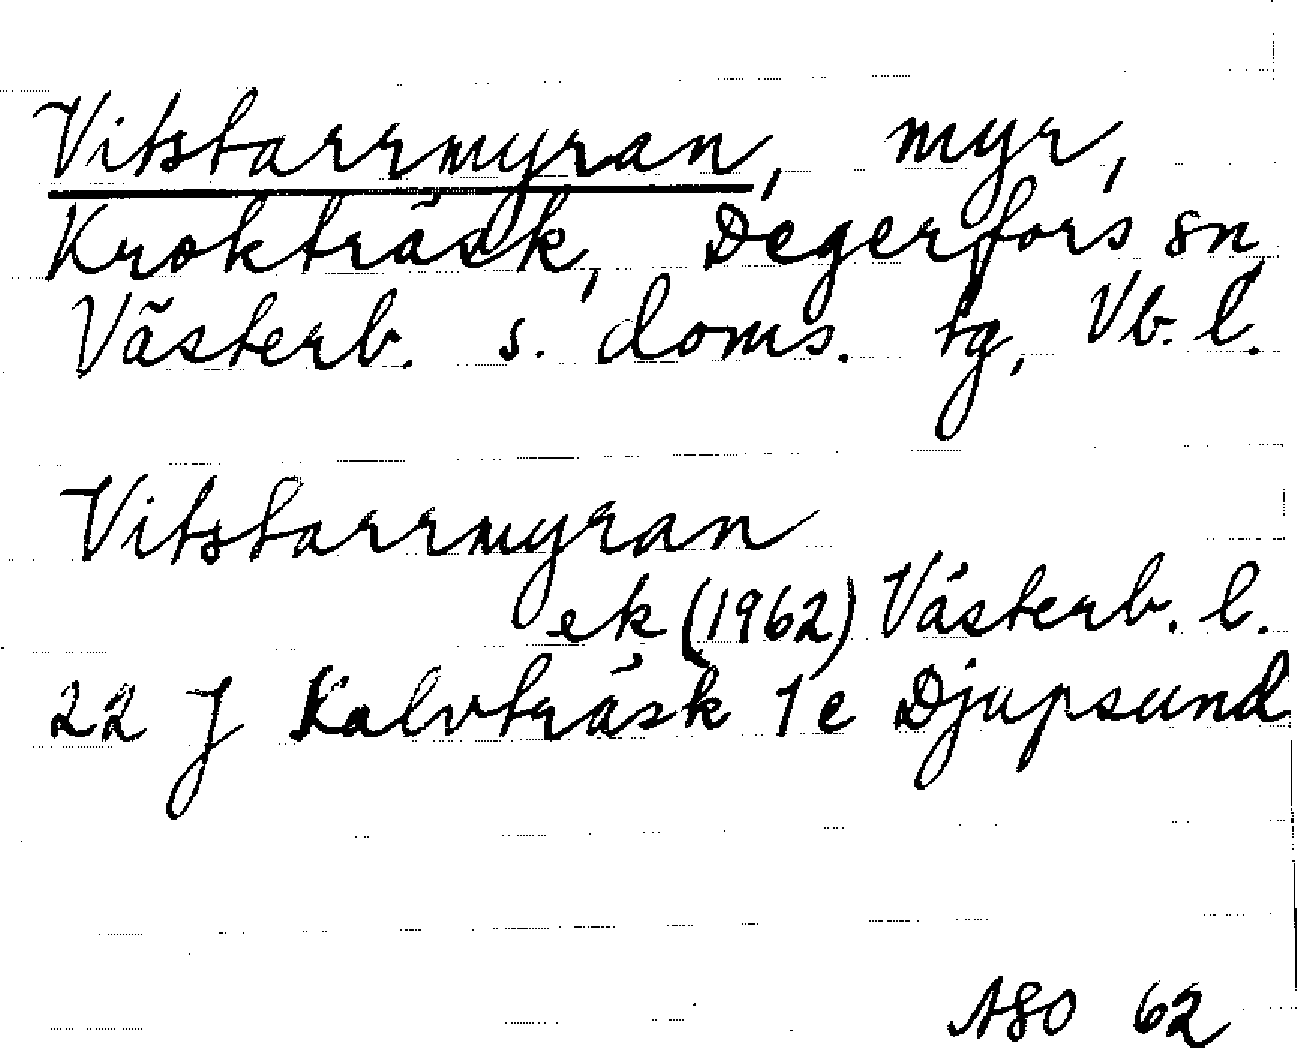 Vitstarrmyran, myr,
Krokträsk, Degerfors sn,
Västerb. s. doms. tg, Vb. l.
Vitstarrmyran
ek (1962) Västerb. l.
22 J Kalvträsk 1 e Djupsund
ASO 62